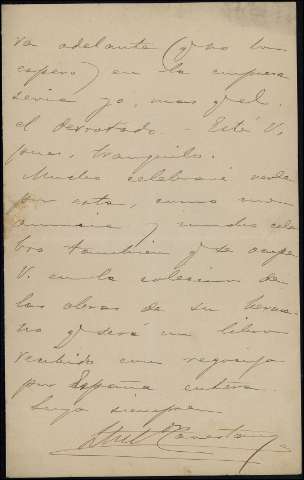 va adelante (q. así lo
espero) en la empresa
sería yo, mas q. el
el derrotado. - Esté V.
pues, tranquilo.
Mucho celebraré verle
por esta, como me
anuncia y mucho cele
bro tambien q. se ocupe
V. en la colección de
las obras de su herma
no q. será un libro
recibido con regocijo
por España entera.
Suyo siempre